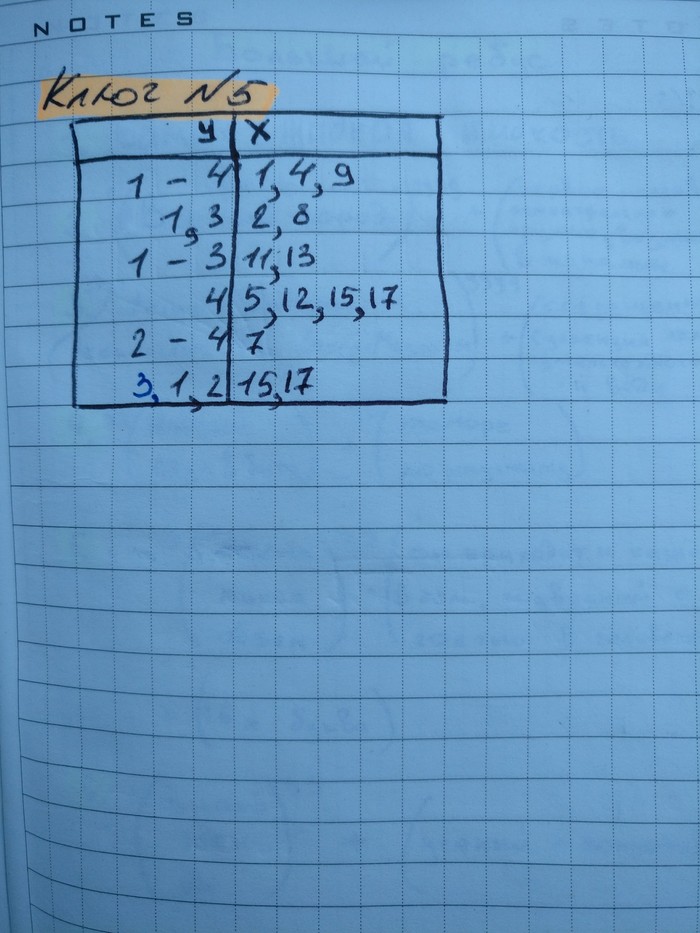 NOTES
Ключ №5
У Х
1 - 4 1, 4, 9
1, 3 2, 8
1 - 3 11, 13
4 5, 12, 15, 17
2 - 4 7
3, 1, 2 15, 17